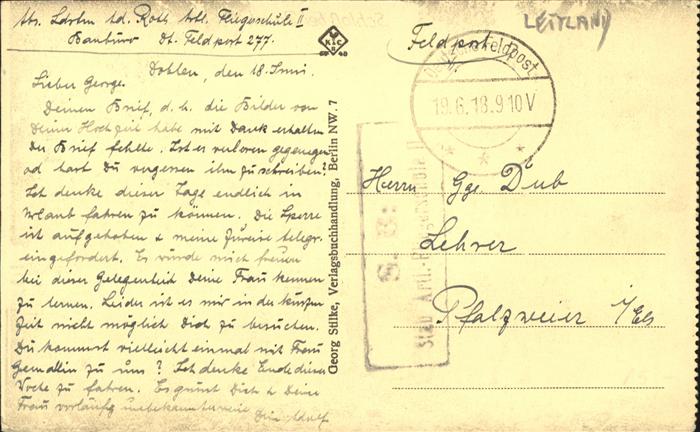 Abs. Ldstm. Ad. Roth Artl. Fliegerschule II
Dt. Feldpost 277.
Dohlen, den 18. Juni.
Lieber George.
Deinen Brief, d. h. die Bilder von
Deiner Hochzeit habe mit Dank erhalten
der Brief fehlte. Ist er verloren gegangen
od hast Du vergessen ihn zu schreiben?
Ich denke dieser Tage endlich in
Urlaub fahren zu können. Die Sperre
ist aufgehoben & meine telegr.
eingefordert. Es würde mich freuen
bei dieser Gelegenheit Deine Frau kennen
zu lernen. Leider ist es mir in der kurzen
Zeit nicht möglich Dich zu besuchen.
Du kommst vielleicht einmal mit Frau
Gemahlin zu uns? Ich denke Ende dieser
Woche zu fahren. Es grüsst Dich & Deine
Frau vorläufig unbekannterweise
Dein Adolf
K&C
Georg Stilke, Verlagsbuchhandlung, Berlin NW. 7
LETTLAND
Feldpost
Feldpost
19.6.18. 9 10 V
S. B.
Herrn Gg. Dub
Lehrer
Pfalzweier i/Els